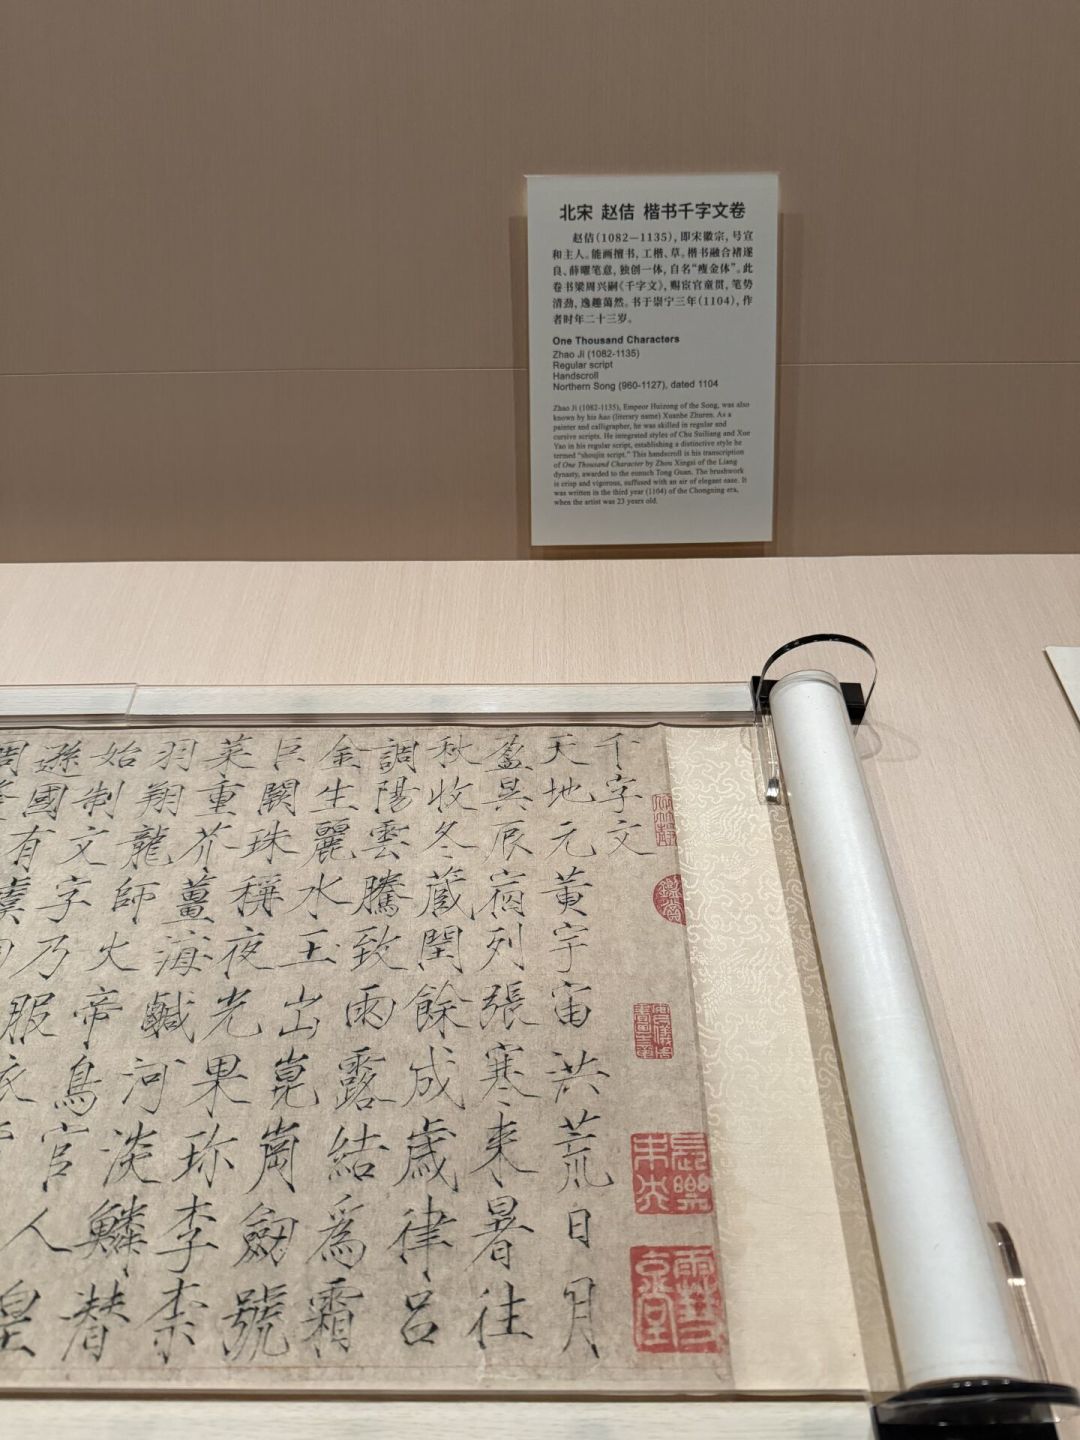 北宋 赵佶 楷书千字文卷
赵佶(1082—1135),即宋徽宗,号宣
和主人。能画擅书,工楷、草。楷书融合褚遂
良、薛曜笔意,独创一体,自名“瘦金体”。此
卷书梁周兴嗣《千字文》,赐宦官童贯,笔势
清劲,逸趣蔼然。书于崇宁三年(1104),作
者时年二十三岁。
One Thousand Characters
Zhao Ji (1082-1135)
Regular script
Handscroll
Northern Song (960-1127), dated 1104
Zhao Ji (1082-1135), Empeor Huizong of the Song, was also
known by his hao (literary name) Xuanhe Zhuren. As a
painter and calligrapher, he was skilled in regular and
cursive scripts. He integrated styles of Chu Suiliang and Xue
Yao in his regular script, establishing a distinctive style he
termed “shoujin script.” This handscroll is his transcription
of One Thousand Character by Zhou Xingsi of the Liang
dynasty, awarded to the eunuch Tong Guan. The brushwork
is crisp and vigorous, suffused with an air of elegant ease. It
was written in the third year (1104) of the Chongning era,
when the artist was 23 years old.
千字文
天地元黄宇宙洪荒日月
盈昃辰宿列張寒来暑往
秋收冬蔵閏餘成歲律呂
調陽雲騰致雨露結為霜
金生麗水玉出崑崗劒號
巨闕珠稱夜光果珎李柰
菜重芥薑海鹹河淡鱗潛
羽翔龍師火帝鳥官人皇
始制文字乃服衣
遜國有虞